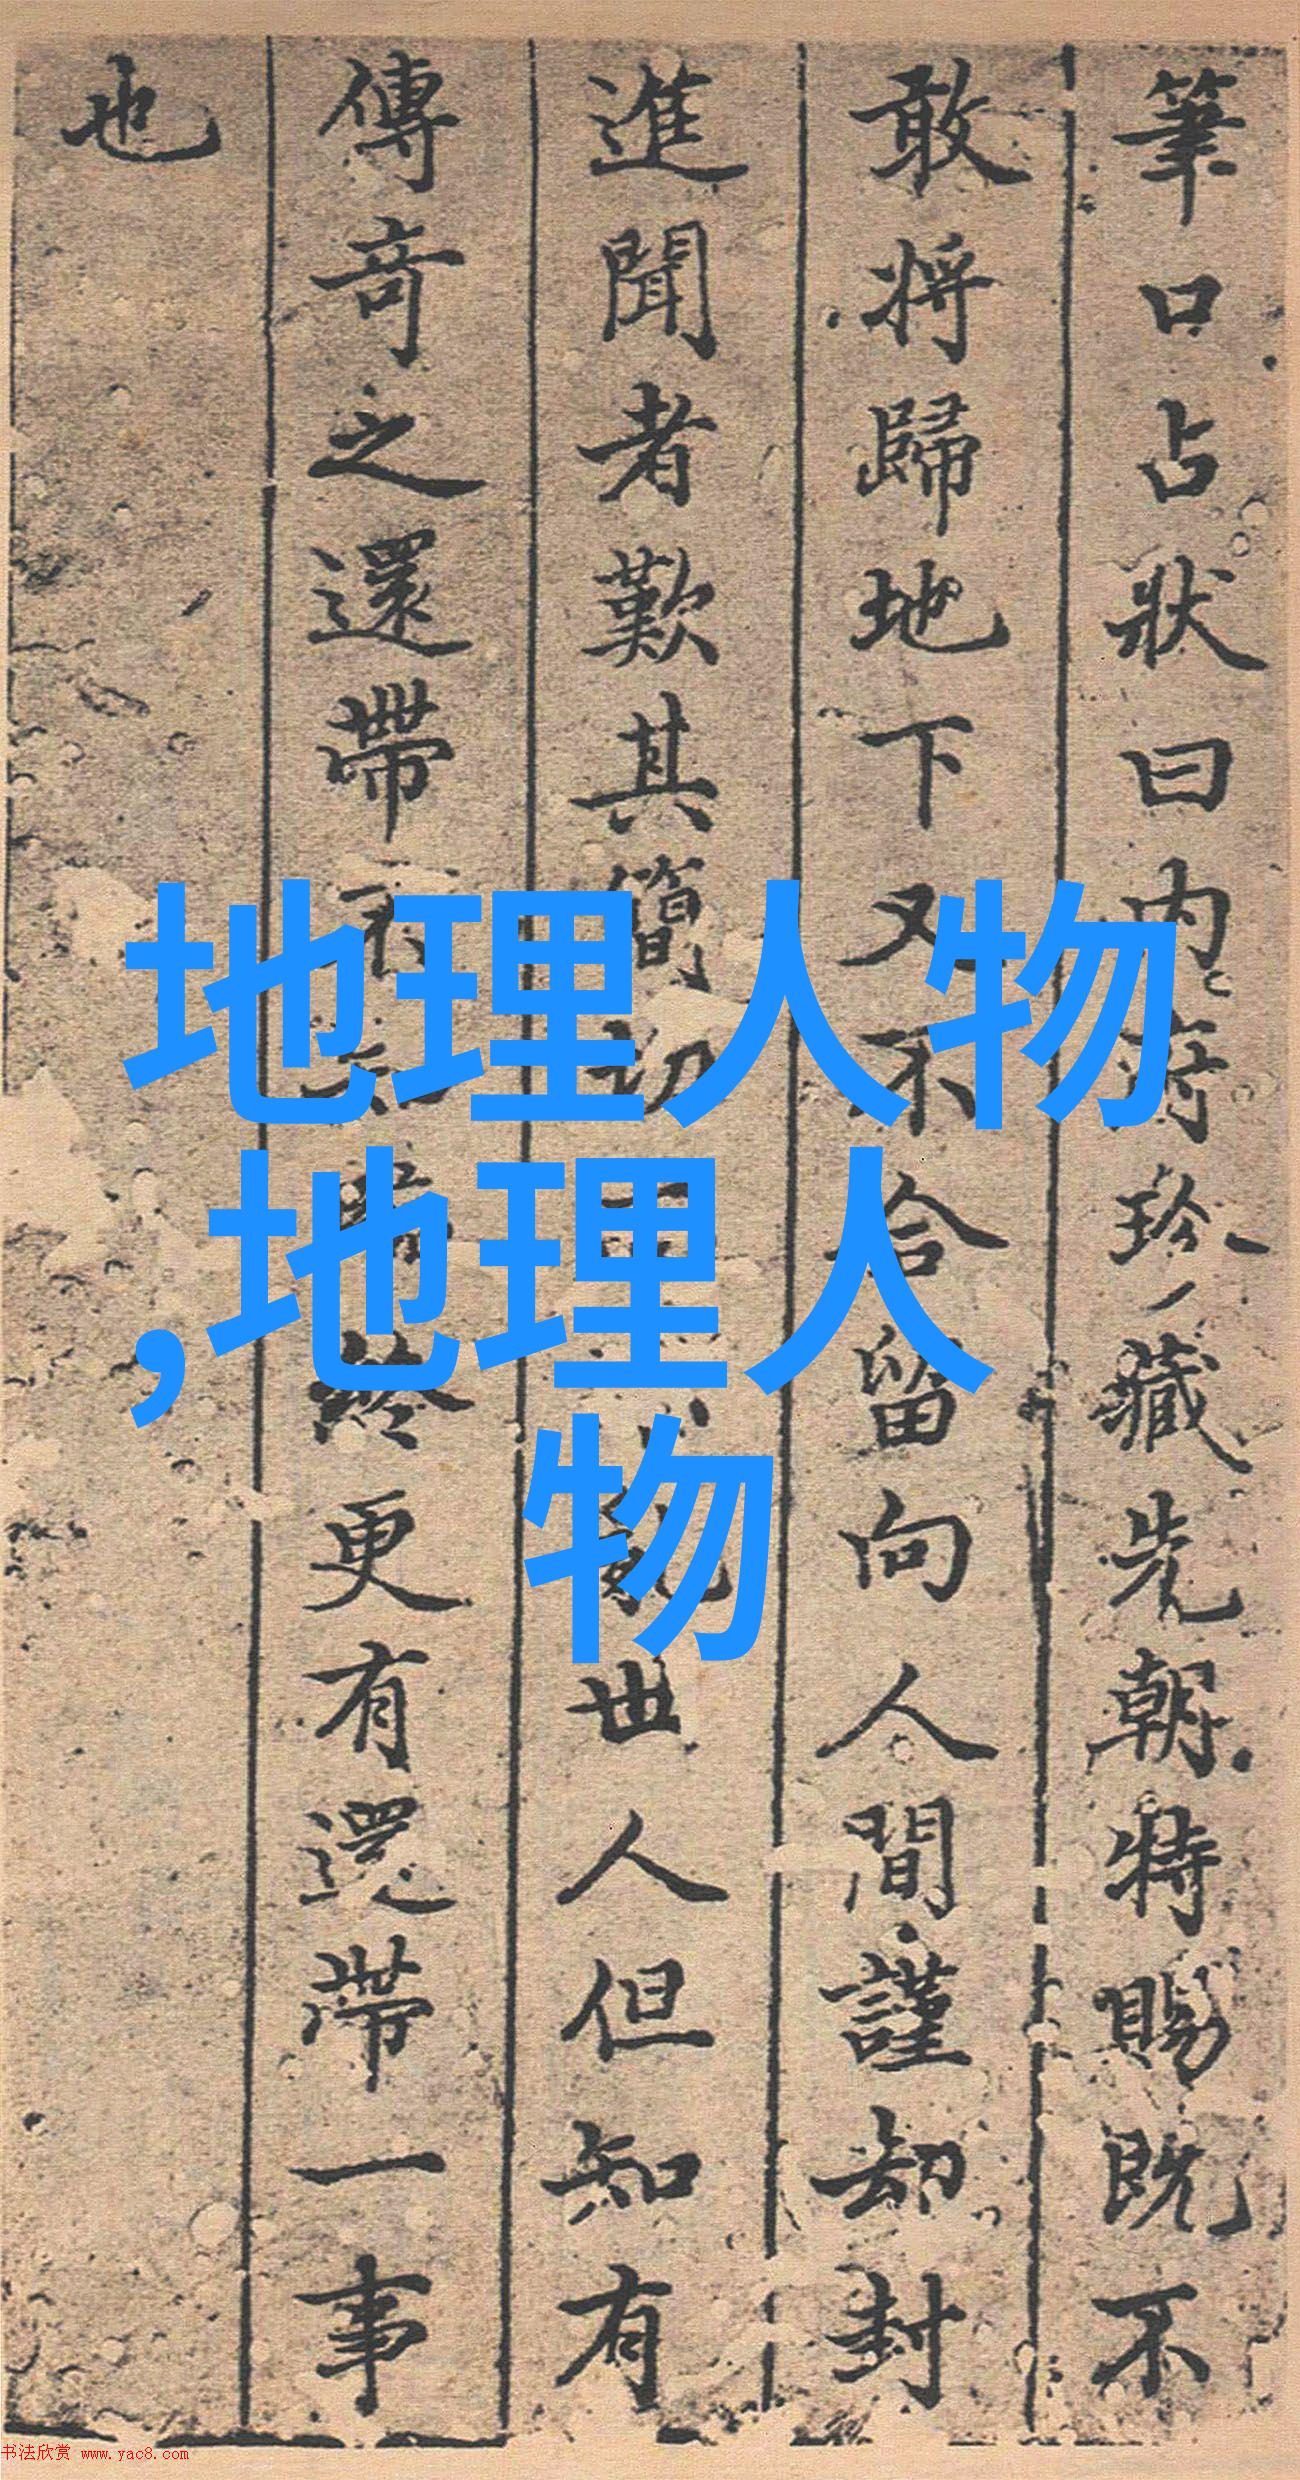 筆口占狀曰内府珍藏先朝特賜既不
敢將歸地下又不合留向人間謹却封
進聞者歎其簡切亂世人但知有
傳奇之還帶不知終更有還帶一事
也
地理人物
,地理人
物
书法欣赏 www.yac8.com